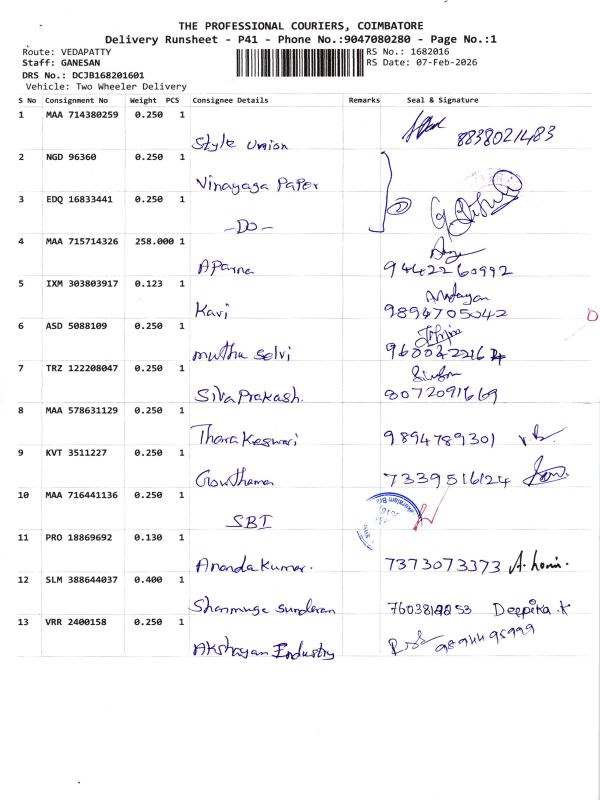 THE PROFESSIONAL COURIERS, COIMBATORE
Delivery Runsheet - P41 - Phone No.:9047080280 - Page No.:1
Route: VEDAPATTY
RS No.: 1682016
Staff: GANESAN
RS Date: 07-Feb-2026
DRS No.: DCJB168201601
Vehicle: Two Wheeler Delivery
S No Consignment No Weight PCS Consignee Details Remarks Seal & Signature
1 MAA 714380259 0.250 1
Style union 8838021483
2 NGD 96360 0.250 1
Vinayaga Paper
3 EDQ 16833441 0.250 1
-Do- 2
4 MAA 715714326 258.000 1
Aparna 9442260992
5 IXM 303803917 0.123 1
Kavi 9894705042
6 ASD 5088109 0.250 1
muthu selvi
7 TRZ 122208047 0.250 1
Siva Prakash. 8072091669
8 MAA 578631129 0.250 1
Thara Keswari 9894789301
9 KVT 3511227 0.250 1
Gowthaman 7339516124
10 MAA 716441136 0.250 1
SBI
11 PRO 18869692 0.130 1
Ananda Kumar. 7373073373
12 SLM 388644037 0.400 1
Shanmuga sundaran Deepika.k
13 VRR 2400158 0.250 1
Akshayan Industry